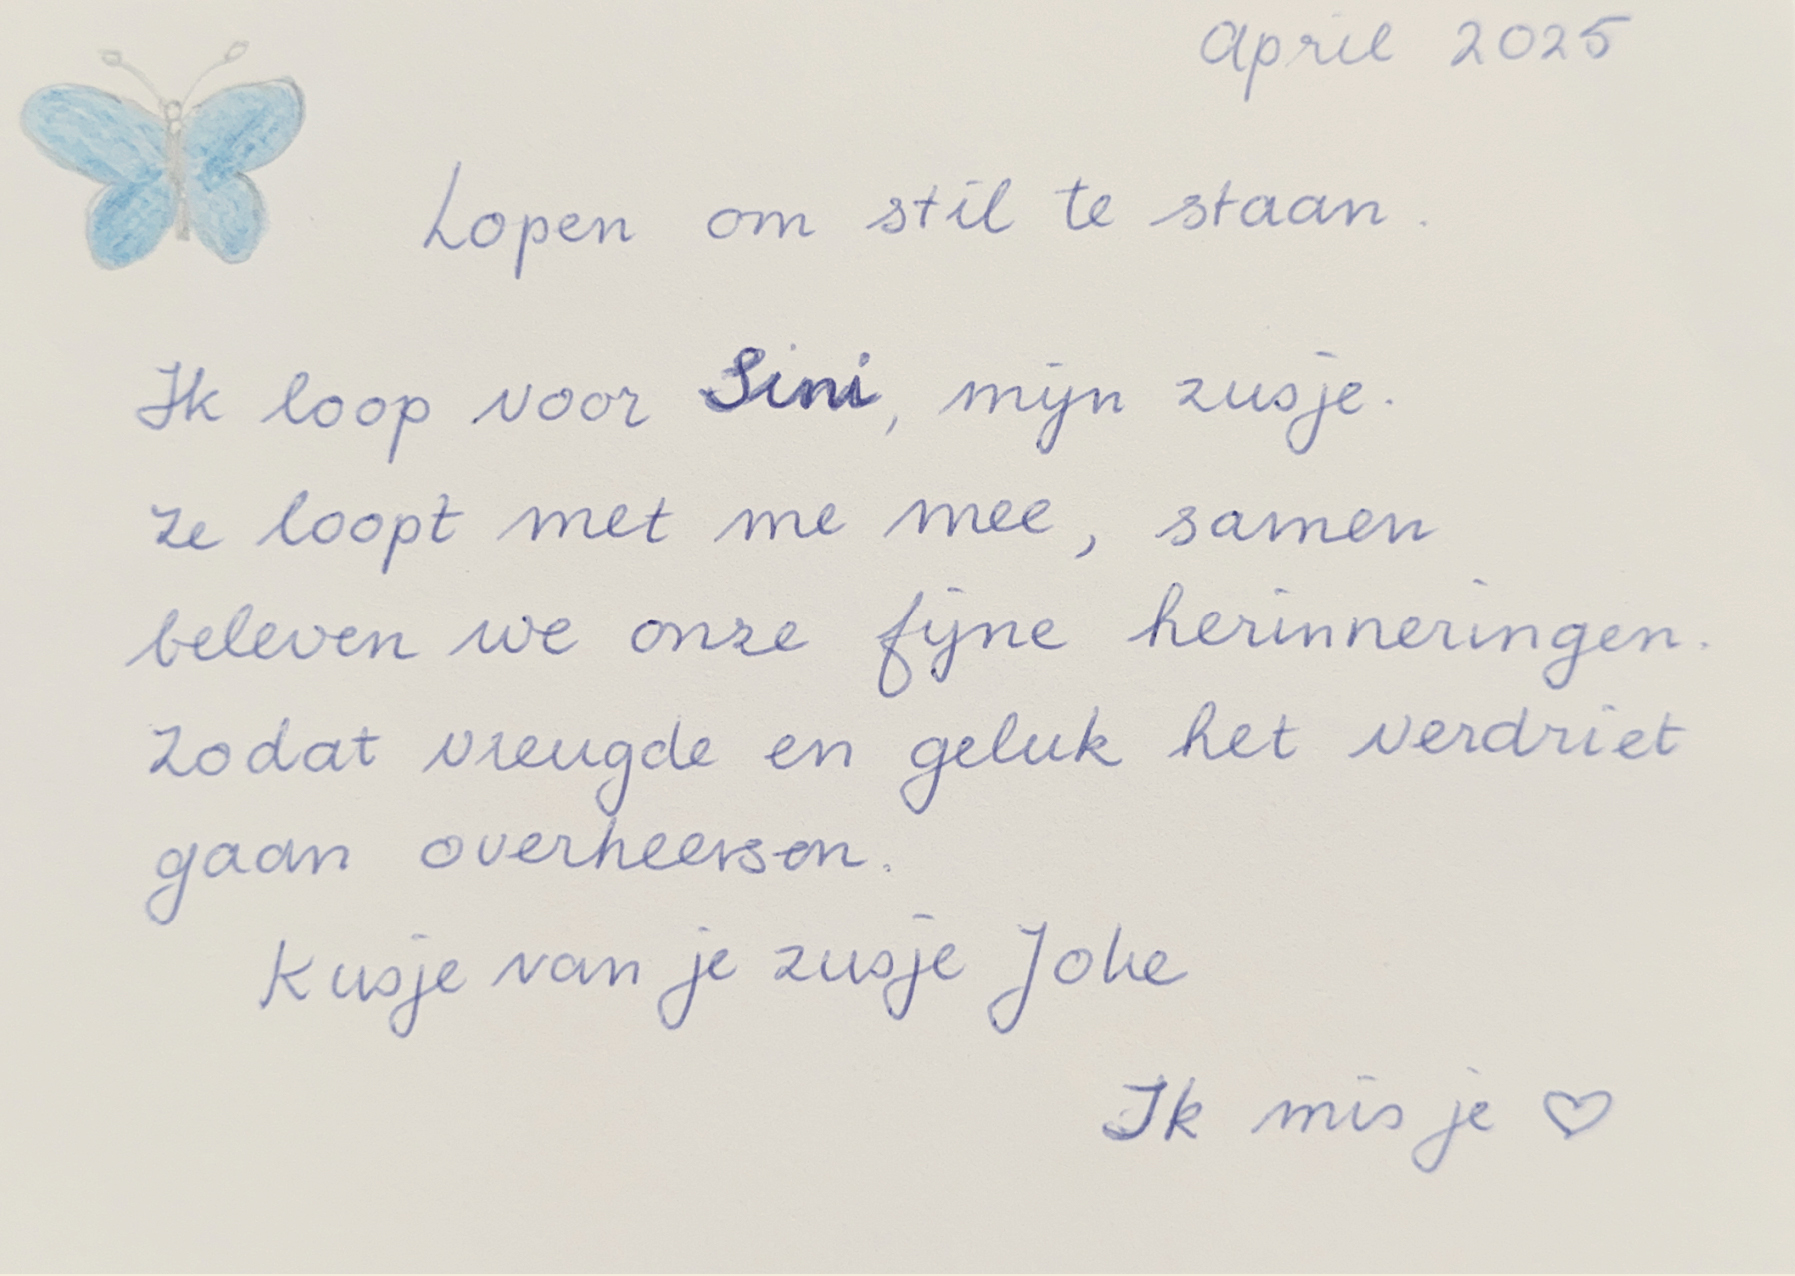 April 2025
Lopen om stil te staan.
Ik loop voor Sini, mijn zusje.
Ze loopt met me mee, samen
beleven we onze fijne herinneringen.
Zodat vreugde en geluk het verdriet
gaan overheersen.
Kusje van je zusje Joke
Ik mis je ♡